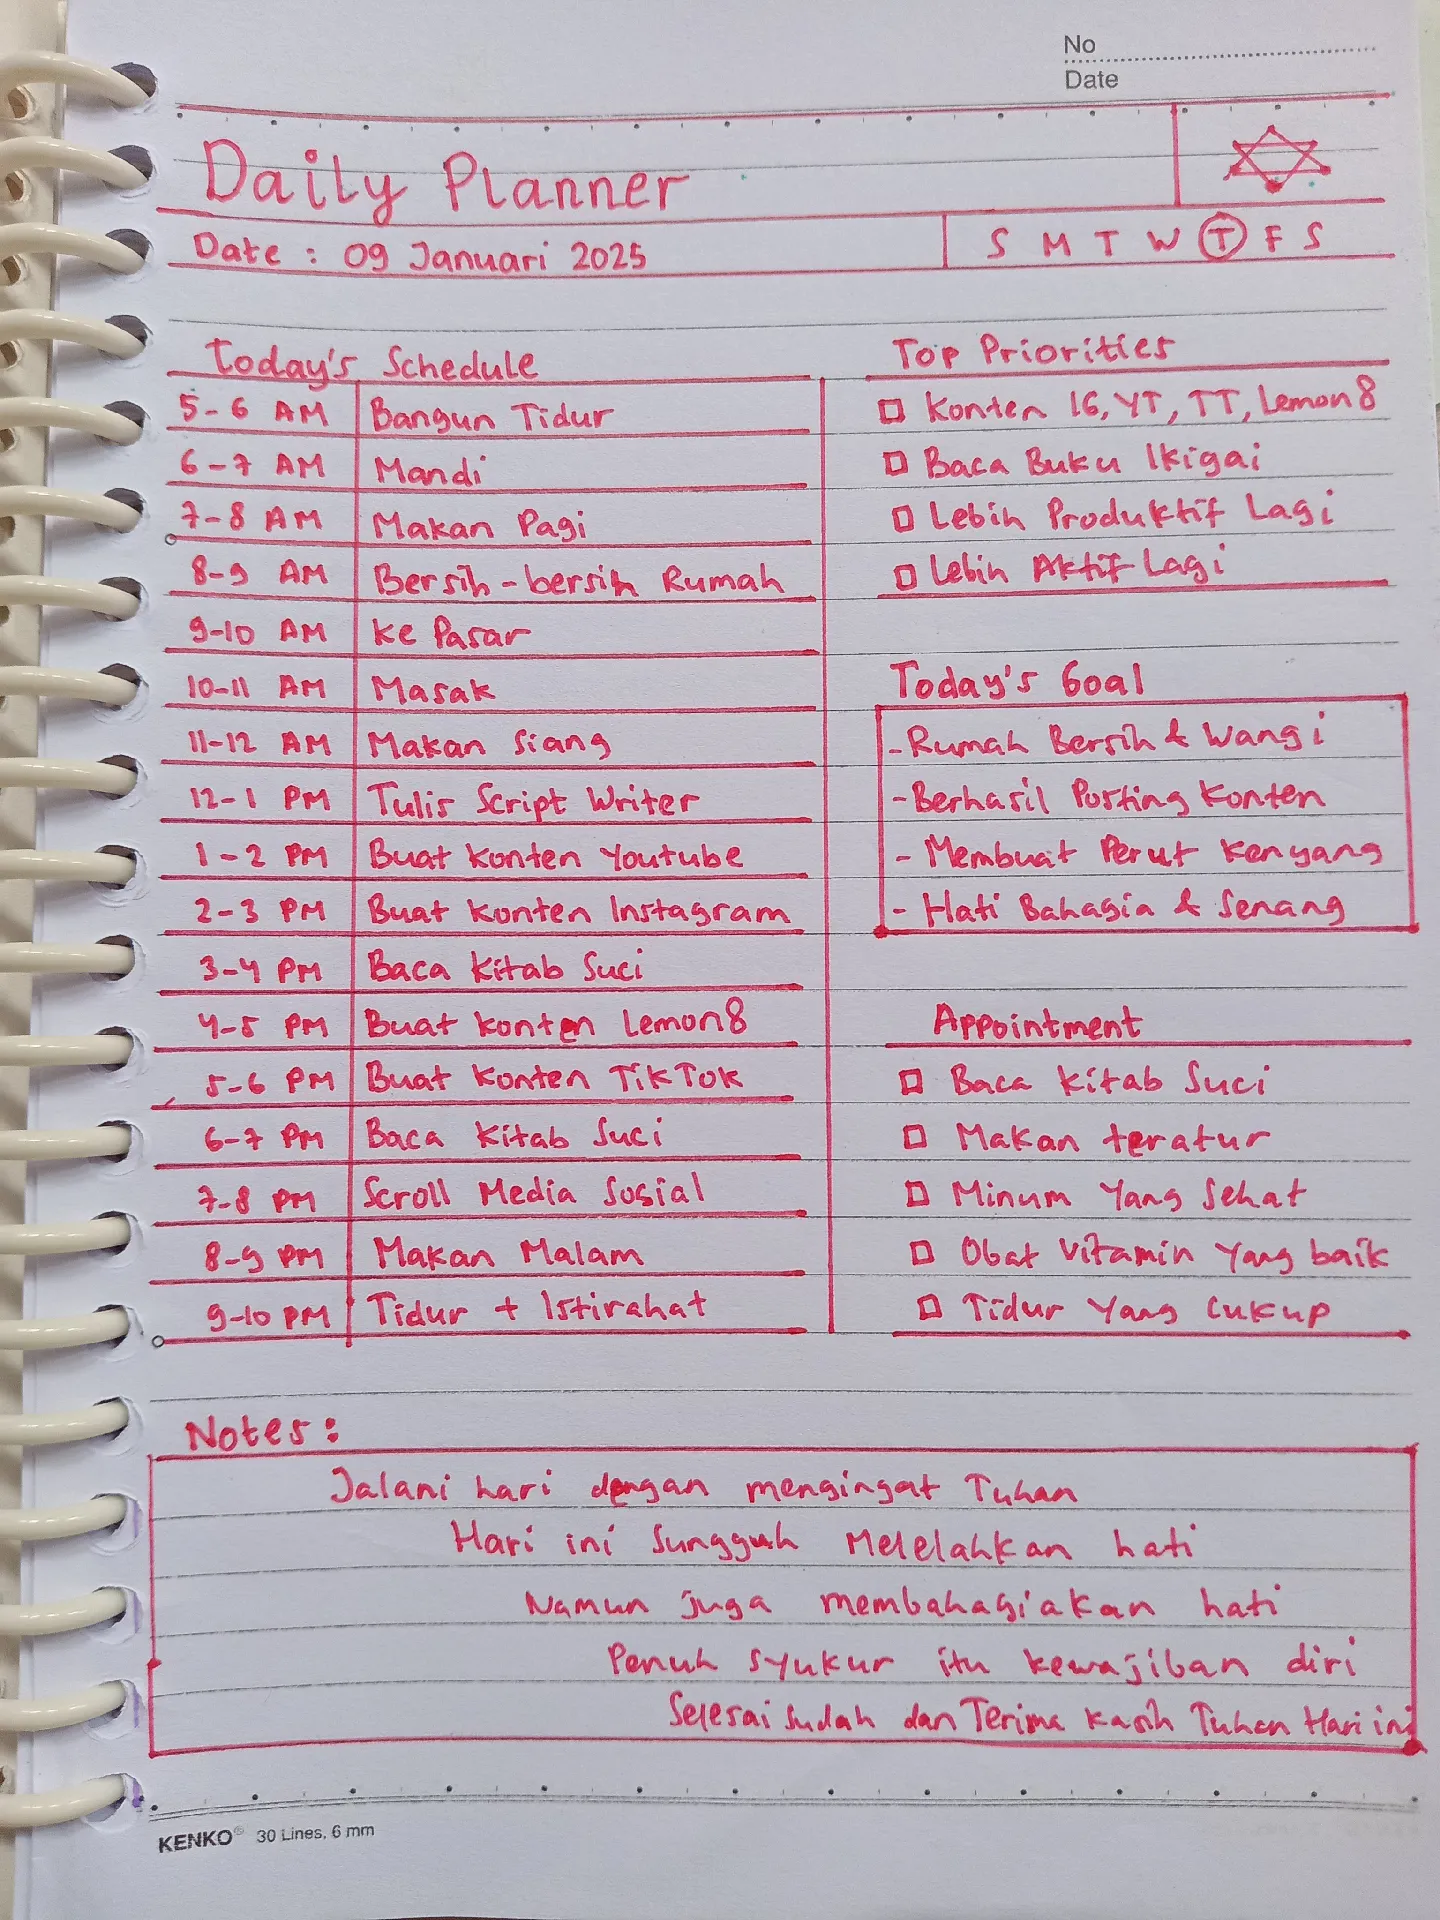 No
Date
Daily Planner
Date : 09 Januari 2025
S M T W T F S
Today's Schedule
5-6 AM Bangun Tidur
6-7 AM Mandi
7-8 AM Makan Pagi
8-9 AM Bersih-bersih Rumah
9-10 AM Ke Pasar
10-11 AM Masak
11-12 AM Makan Siang
12-1 PM Tulis Script Writer
1-2 PM Buat Konten Youtube
2-3 PM Buat Konten Instagram
3-4 PM Baca Kitab Suci
4-5 PM Buat Konten Lemon8
5-6 PM Buat Konten TikTok
6-7 PM Baca Kitab Suci
7-8 PM Scroll Media Sosial
8-9 PM Makan Malam
9-10 PM Tidur + Istirahat
Top Priorities
Konten IG, YT, TT, Lemon8
Baca Buku Ikigai
Lebih Produktif Lagi
Lebih Aktif Lagi
Today's Goal
- Rumah Bersih & Wangi
- Berhasil Posting Konten
- Membuat Perut Kenyang
- Hati Bahagia & Senang
Appointment
Baca Kitab Suci
Makan teratur
Minum Yang Sehat
Obat Vitamin Yang baik
Tidur Yang Cukup
Notes:
Jalani hari dengan mengingat Tuhan
Hari ini Sungguh Melelahkan hati
Namun juga membahagiakan hati
Penuh syukur itu kewajiban diri
Selesai Sudah dan Terima Kasih Tuhan Hari ini
KENKO® 30 Lines, 6 mm